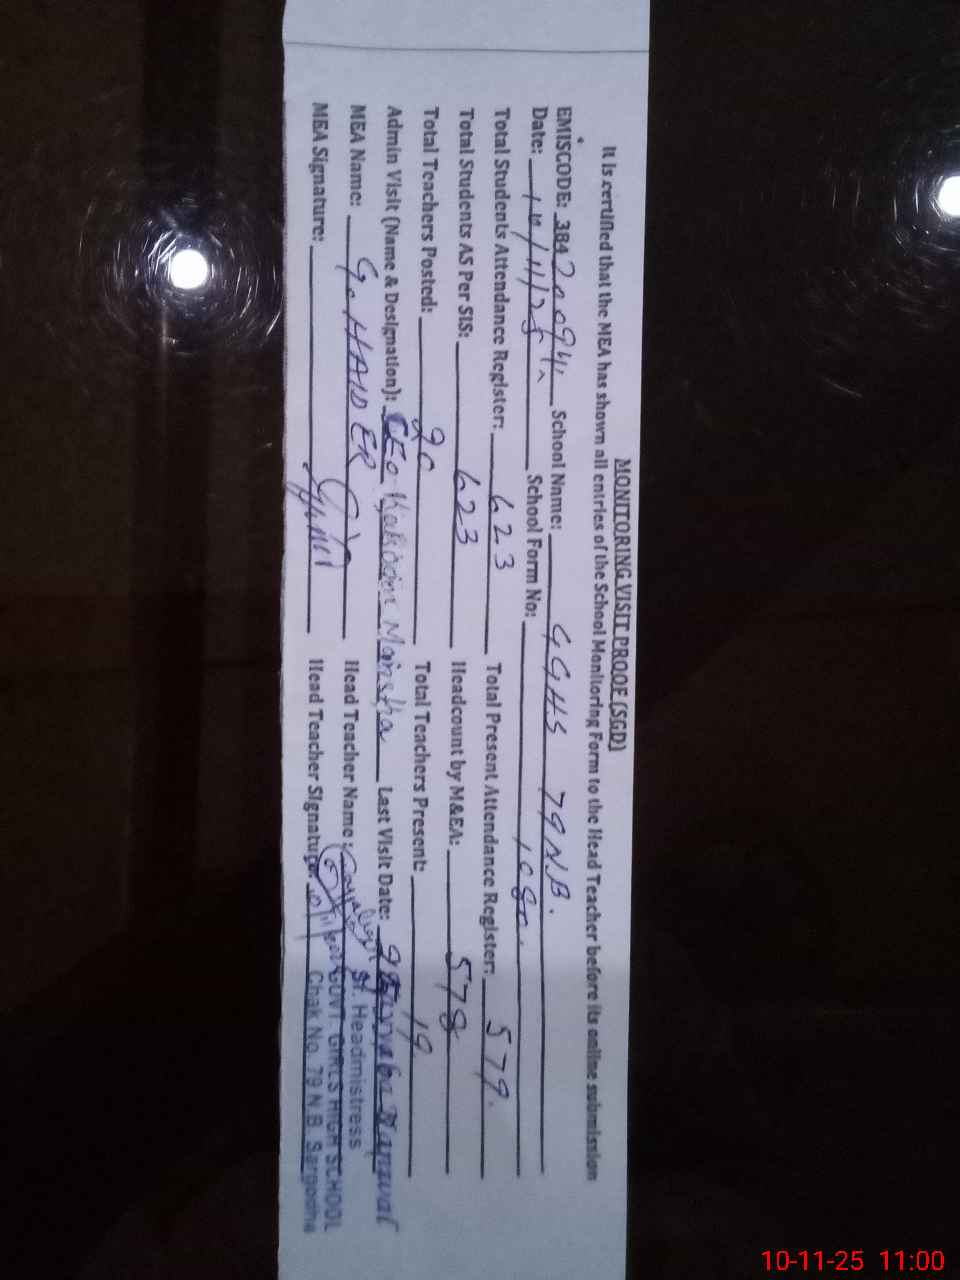 MONITORING VISIT PROOF (SGD)
It is certified that the MEA has shown all entries of the School Monitoring Form to the Head Teacher before its online submission
EMISCODE: 384 School Name: GGHS 79 NB.
Date: 10/11/25 School Form No: 1080.
Total Students Attendance Register: 623 Total Present Attendance Register: 579.
Total Students AS Per SIS: 623 Headcount by M&EA: 578
Total Teachers Posted: 20 Total Teachers Present: 19.
Admin Visit (Name & Designation): CEO Last Visit Date:
MEA Name: HAIDER Head Teacher Name:
Sr. Headmistress
MEA Signature: Head Teacher Signature:
GOVT. GIRLS HIGH SCHOOL
Chak No. 79 N.B. Sargodha
10-11-25 11:00